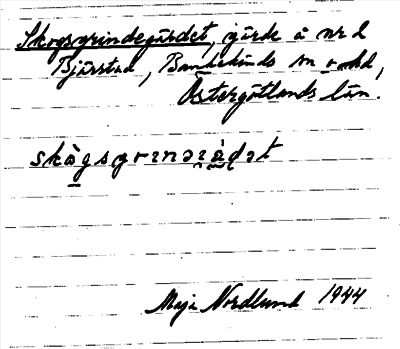 Skogsgrindegärdet, gärde å nr 2
Bjärstad, Bankekinds sn o. hd,
Östergötlands län.
skògsgrɪnəɪæ̀dət
Maja Nordlund 1944